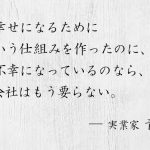 幸せになるために
いう仕組みを作ったのに、
不幸になっているのなら、
会社はもう要らない。
— 実業家